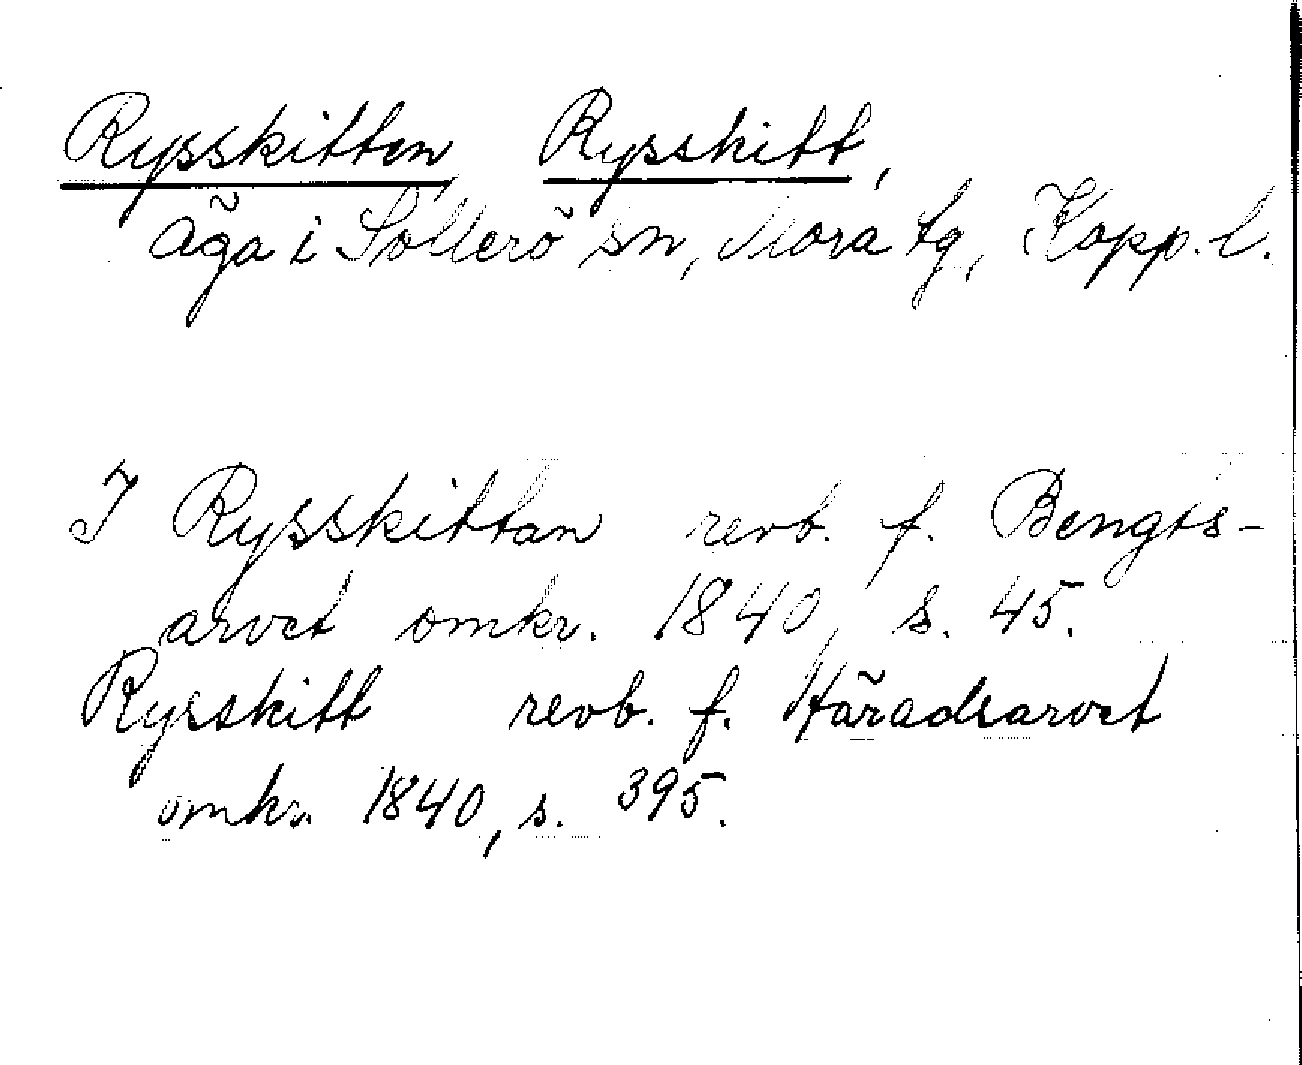 Rysskitten, Rysskitt,
äga i Sollerö sn, Mora tg, Kopp. l.
I Rysskittan revb. f. Bengts-
arvet omkr. 1840, s. 45.
Rysskitt revb. f. Häradsarvet
omkr. 1840, s. 395.